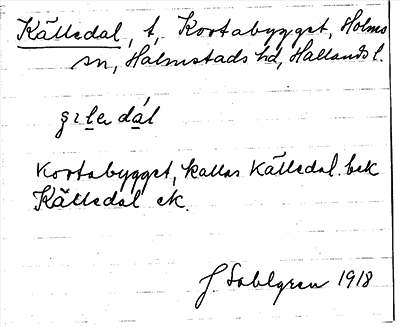 Källsdal, t, Kortabygget, Holms
sn, Halmstads hd, Hallands l.
dál
Kortabygget, kallas Källsdal. bek
Källsdal ek.
J. Sahlgren 1918